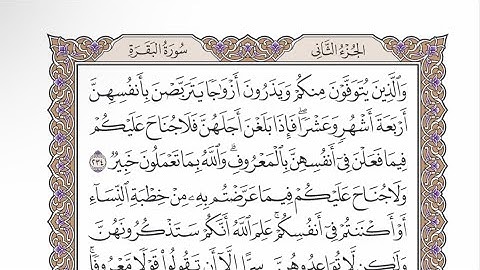 الجزء الثاني
سورة البقرة
وَالَّذِينَ يُتَوَفَّوْنَ مِنكُمْ وَيَذَرُونَ أَزْوَاجًا يَتَرَبَّصْنَ بِأَنفُسِهِنَّ
أَرْبَعَةَ أَشْهُرٍ وَعَشْرًا ۖ فَإِذَا بَلَغْنَ أَجَلَهُنَّ فَلَا جُنَاحَ عَلَيْكُمْ
فِيمَا فَعَلْنَ فِي أَنفُسِهِنَّ بِالْمَعْرُوفِ ۗ وَاللَّهُ بِمَا تَعْمَلُونَ خَبِيرٌ ٢٣٤
وَلَا جُنَاحَ عَلَيْكُمْ فِيمَا عَرَّضْتُم بِهِ مِنْ خِطْبَةِ النِّسَاءِ
أَوْ أَكْنَنتُمْ فِي أَنفُسِكُمْ ۚ عَلِمَ اللَّهُ أَنَّكُمْ سَتَذْكُرُونَهُنَّ
وَلَٰكِن لَّا تُوَاعِدُوهُنَّ سِرًّا إِلَّا أَن تَقُولُوا قَوْلًا مَّعْرُوفًا ۚ